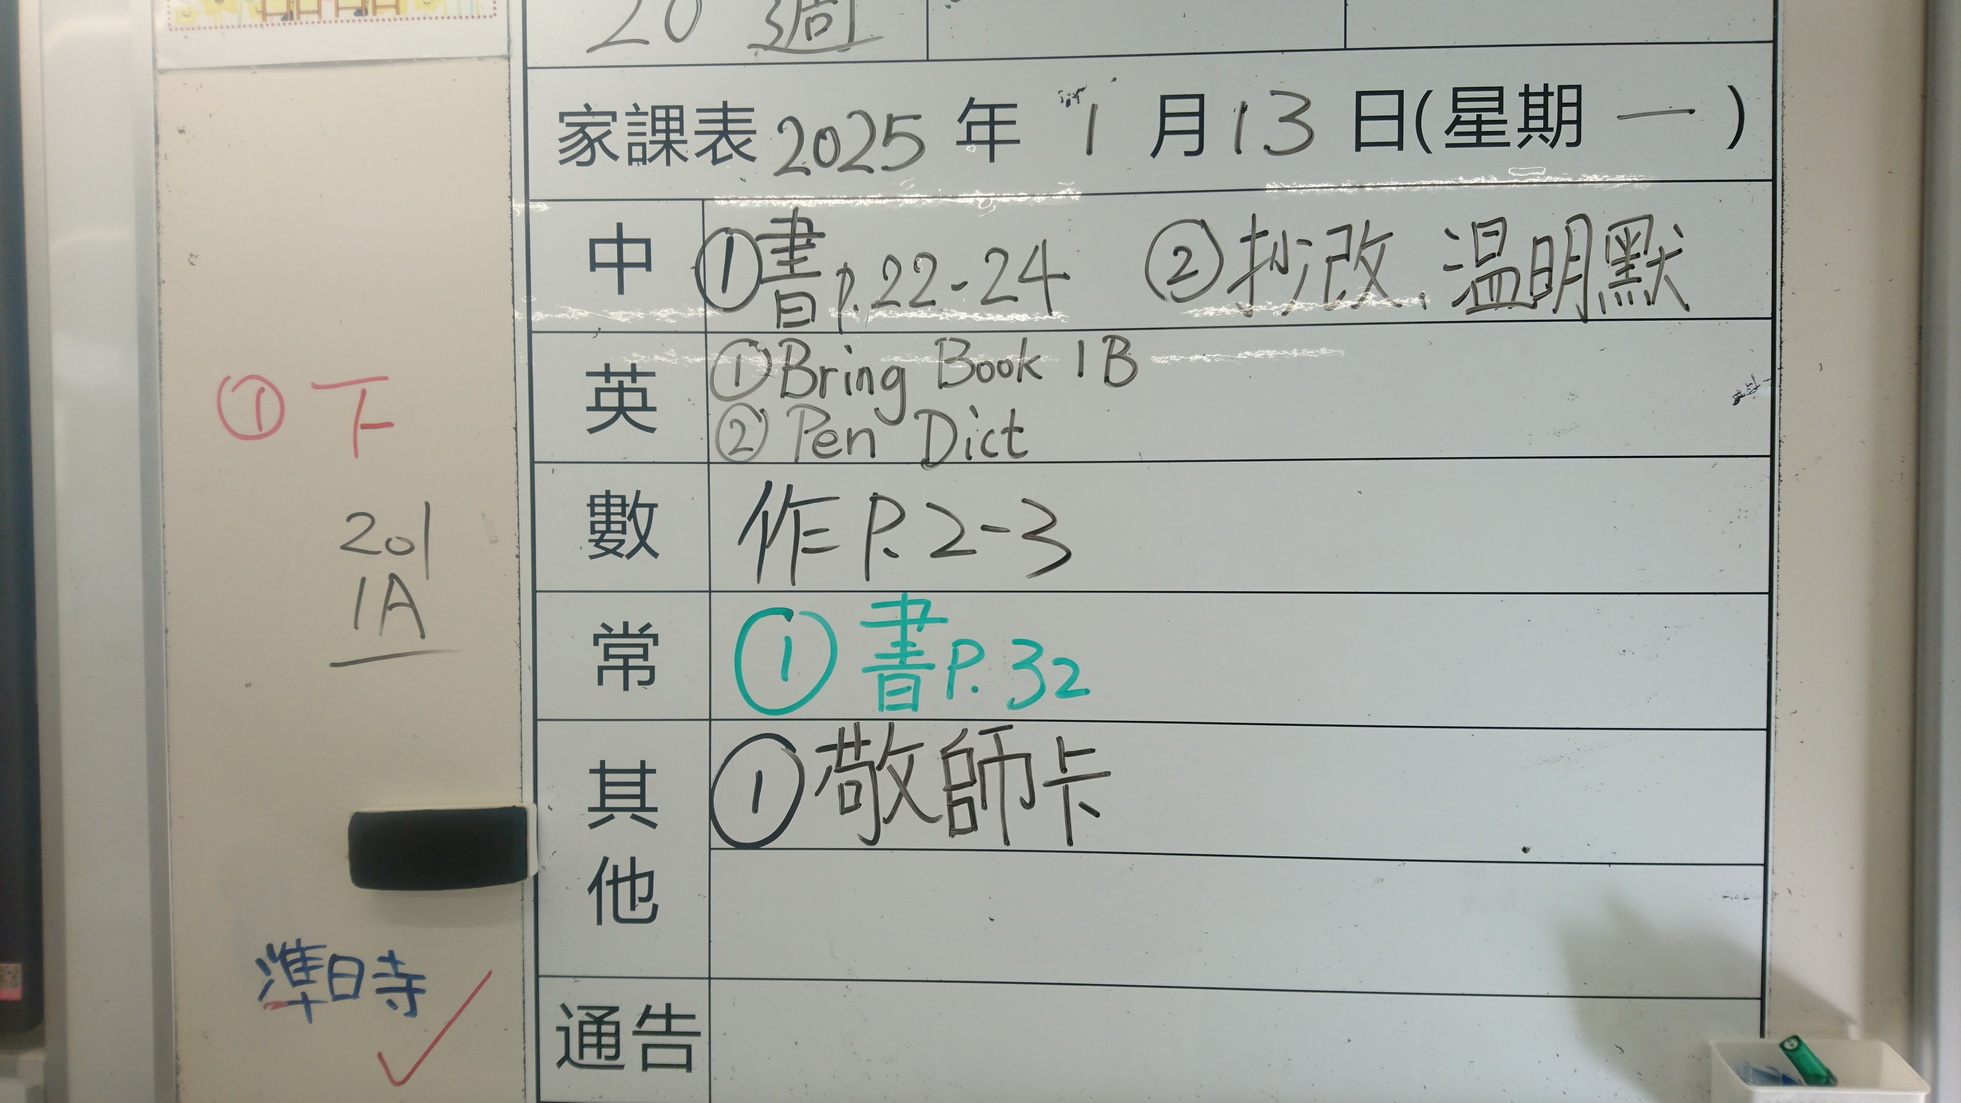 20 週
家課表 2025 年 1 月 13 日(星期 一 )
中 ①書p.22-24 ②抄改、温明默
英 ①Bring Book 1B
②Pen Dict
數 作P.2-3
常 ①書P.32
其他 ①敬師卡
通告
① 下
201
1A
準時 ✓